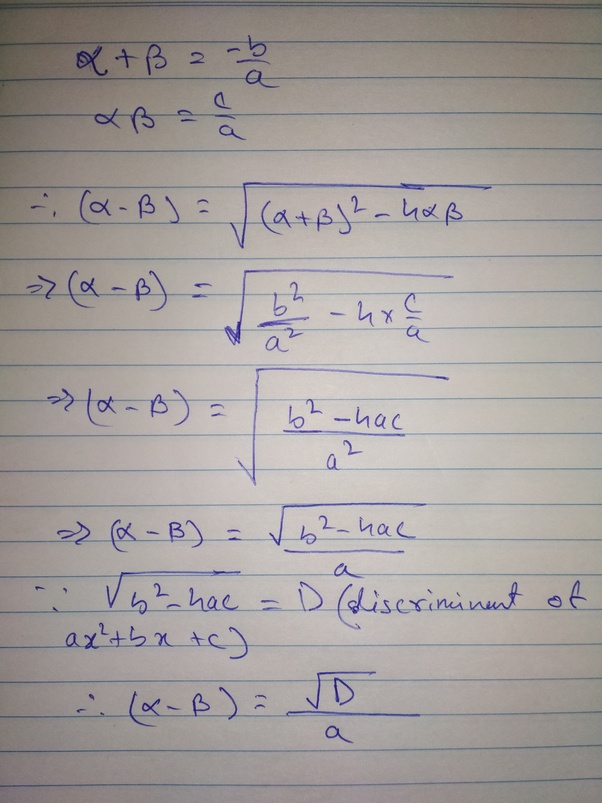 α + β = -b/a
αβ = c/a
∴ (α - β) = √((α+β)² - 4αβ)
⇒ (α - β) = √(b²/a² - 4 × c/a)
⇒ (α - β) = √((b² - 4ac)/a²)
⇒ (α - β) = √(b² - 4ac)/a
∵ √(b² - 4ac) = D (discriminent of
ax² + bx + c)
∴ (α - β) = √D/a